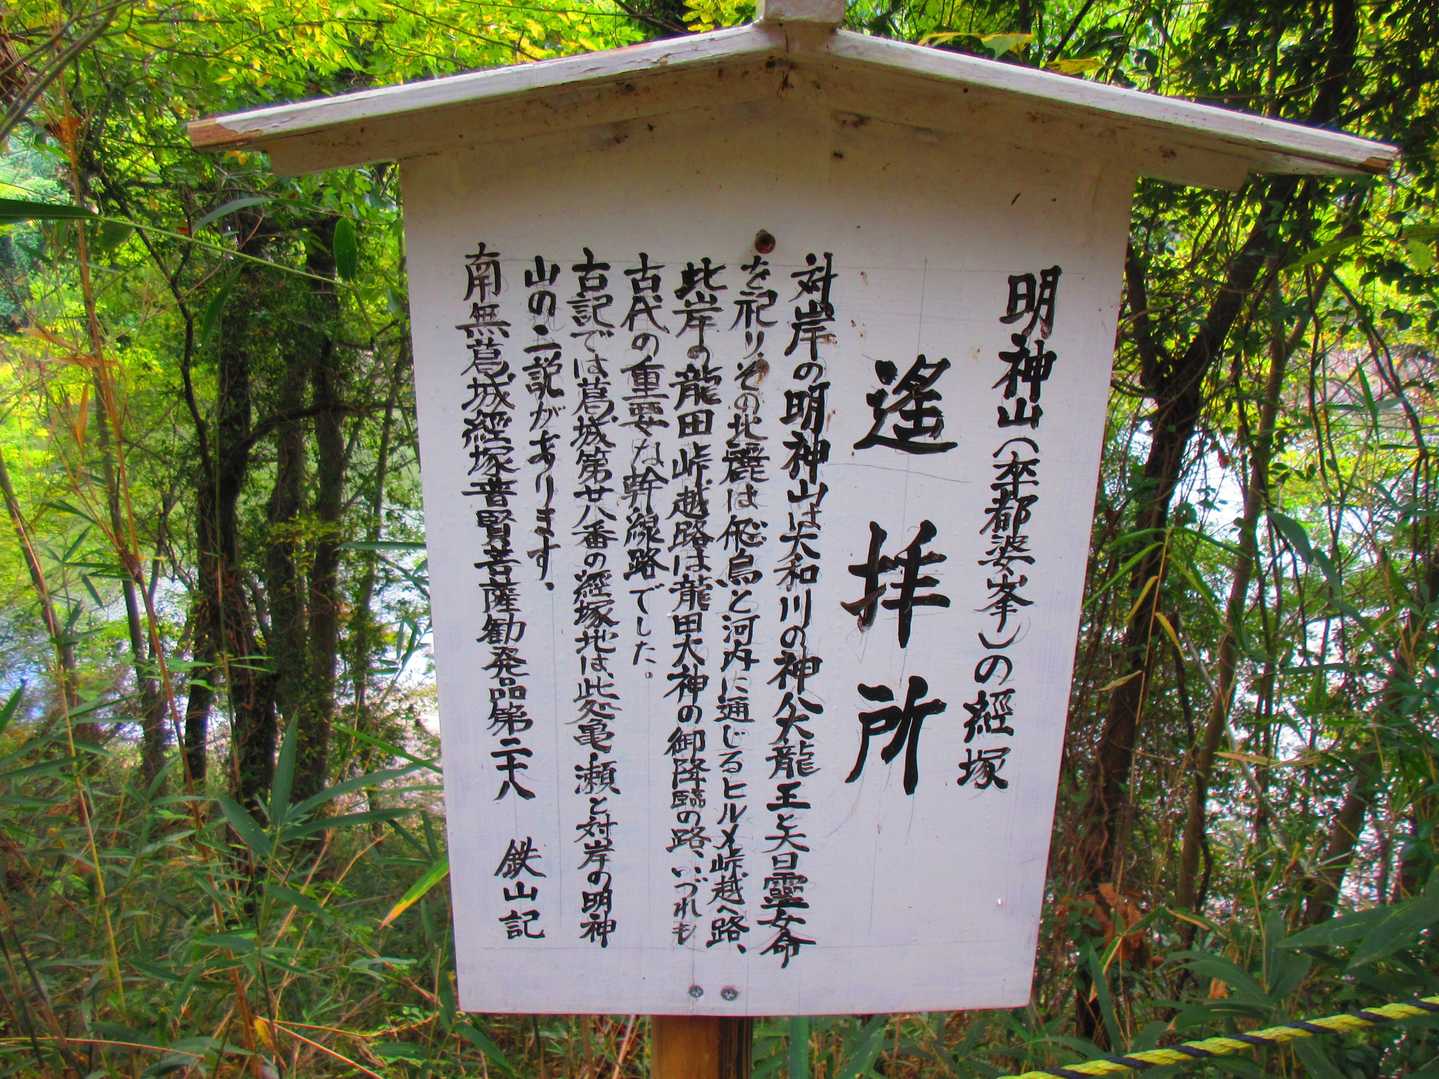 明神山(卒都婆峯)の經塚
遙拝所
対岸の明神山は大和川の神八大龍王と大日靈女命
を祀りその北麓は飛鳥と河内に通じるヒルメ峠越え路、
此岸の龍田峠越路は龍田大神の御降臨の路、いづれも
古代の重要な幹線路でした。
古記では葛城第廿八番の經塚地は、此処亀ノ瀬と対岸の明神
山の二説があります。
南無葛城經塚普賢菩薩勧発品第二十八
鉄山記